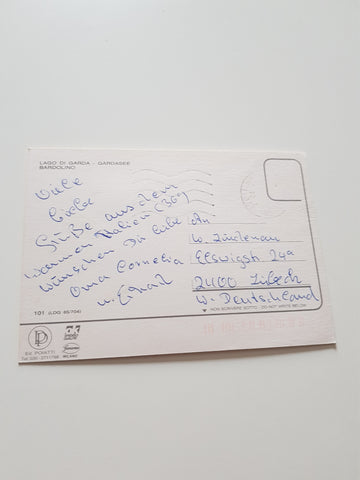 LAGO DI GARDA - GARDASEE
BARDOLINO
Viele
liebe
Grüße aus dem
warmen Italien (36°)
wünschen Dir liebe
Oma Cornelia
u. Erhard
An
W. Zindenau
Elswigstr. 24a
2400 Lübeck
W. Deutschland
101 (LDG 85/704)
NON SCRIVERE SOTTO - DO NOT WRITE BELOW
MILANO